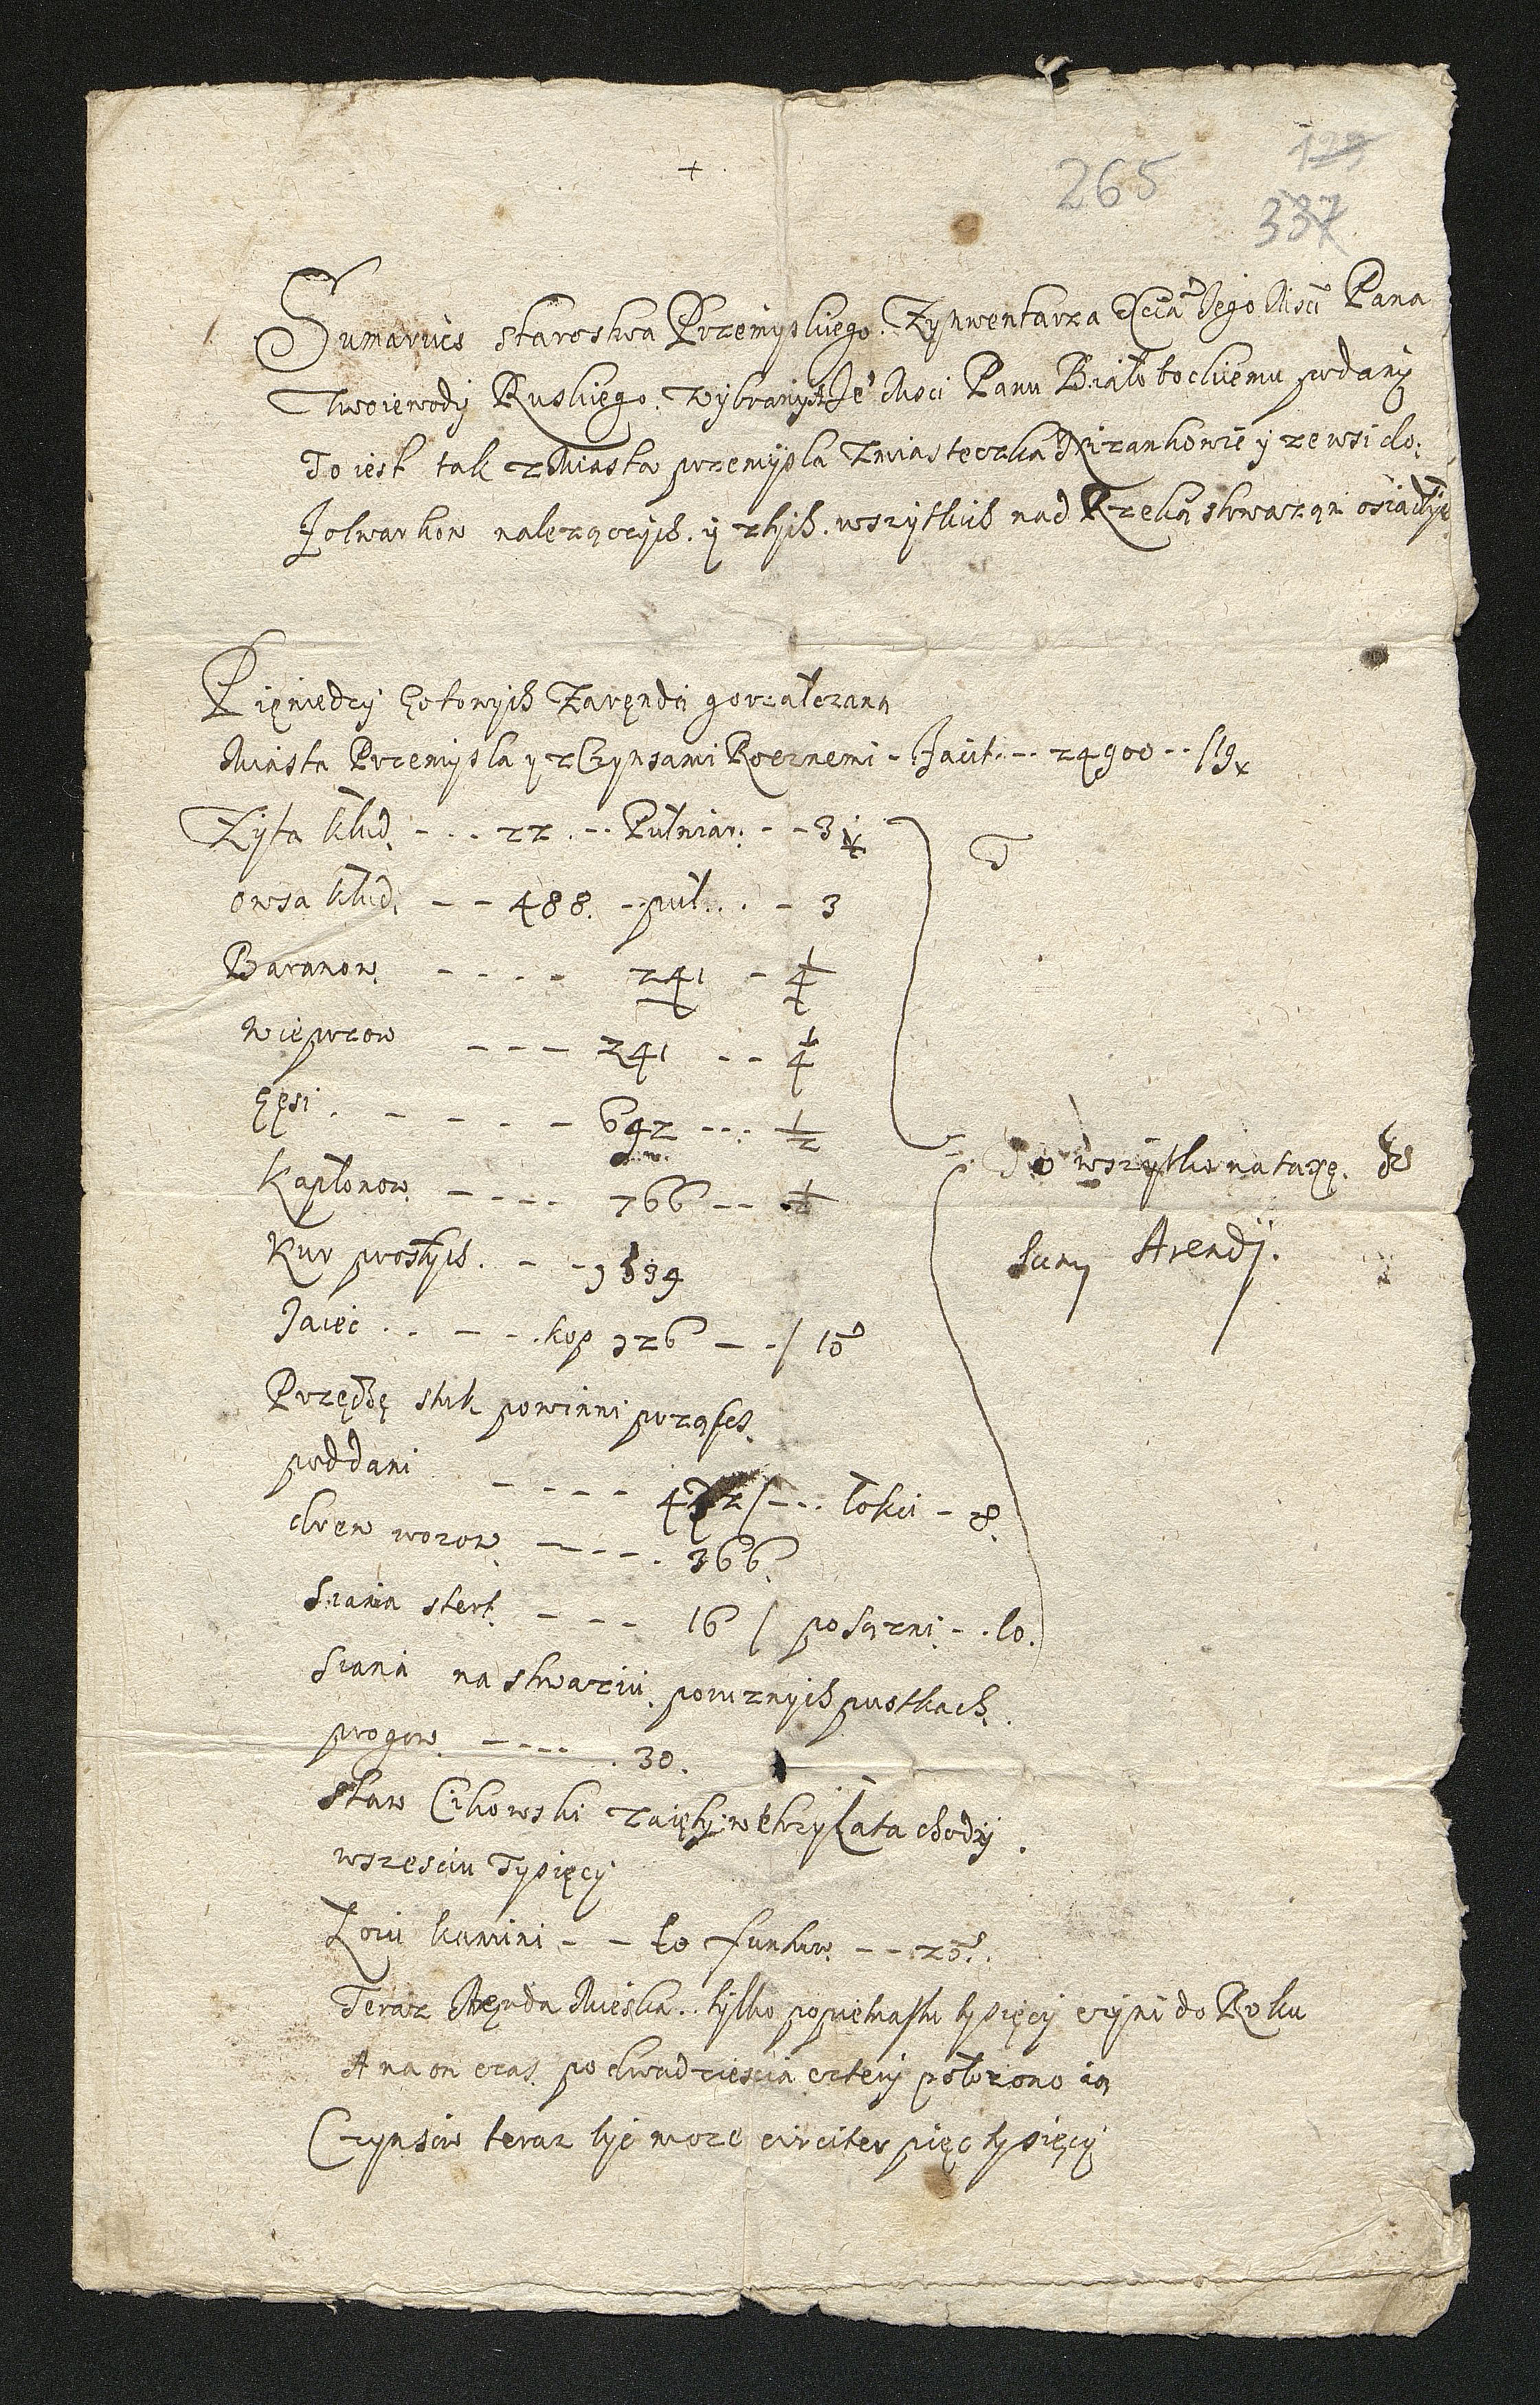 +
265
129
337
Sumarius starostwa Przemyskiego. Zynwentarza Xcia Jego Msci Pana
Woiewody Ruskiego. wybrany Je Msci Panu Białobockiemu podany
To iest tak z Miasta przemysla zmiasteczka Nizankowic y ze wsi do.
folwarkow nalezących. y z tych. wszytkich nad Rzeką stwiązą osiadłych
Pięniedzy Gotowych Zarendą gorzałczaną
Miasta Przemysla y z Czynsami Rocznemi - facit. -- 24900 -- flg
Zyta kłud. - .. 22 .-- Pułmiar. - - 3
owsa kłud. - - 488. - puł... - 3
Baranow - - - - 241 - 1/4
wieprzow - - - 241 -- 1/4
Gęsi . - - - - 642 ... 1/2
Kapłonow - - - - 766 -- 1/2
Kur prostych. - -
Jaiec . . - - . kop 926 - - / 10
To wszytko na taxę. z
Sumy Arendy.
Przędzę sztuk powinni prząsc
poddani - - - - łokci - 8.
drew wozow - - - . 366.
Siana stert - - - 16 / po sązni. - . 10.
Siana na stwiaziu. poruznych pustkach.
progow. - --- . 30.
staw Cikowski zaięty. w trzy Lata chodzi.
wszesciu Tysięcy
Łoiu kamini - - 10 funtow. -- 20.
Teraz Arenda Mieska.. tylko popietnastu tysięcy czyni do Roku
A na on czas po dwadziescia cztery połozono ią
Czynsow teraz byc moze circiter pięc tysięcy